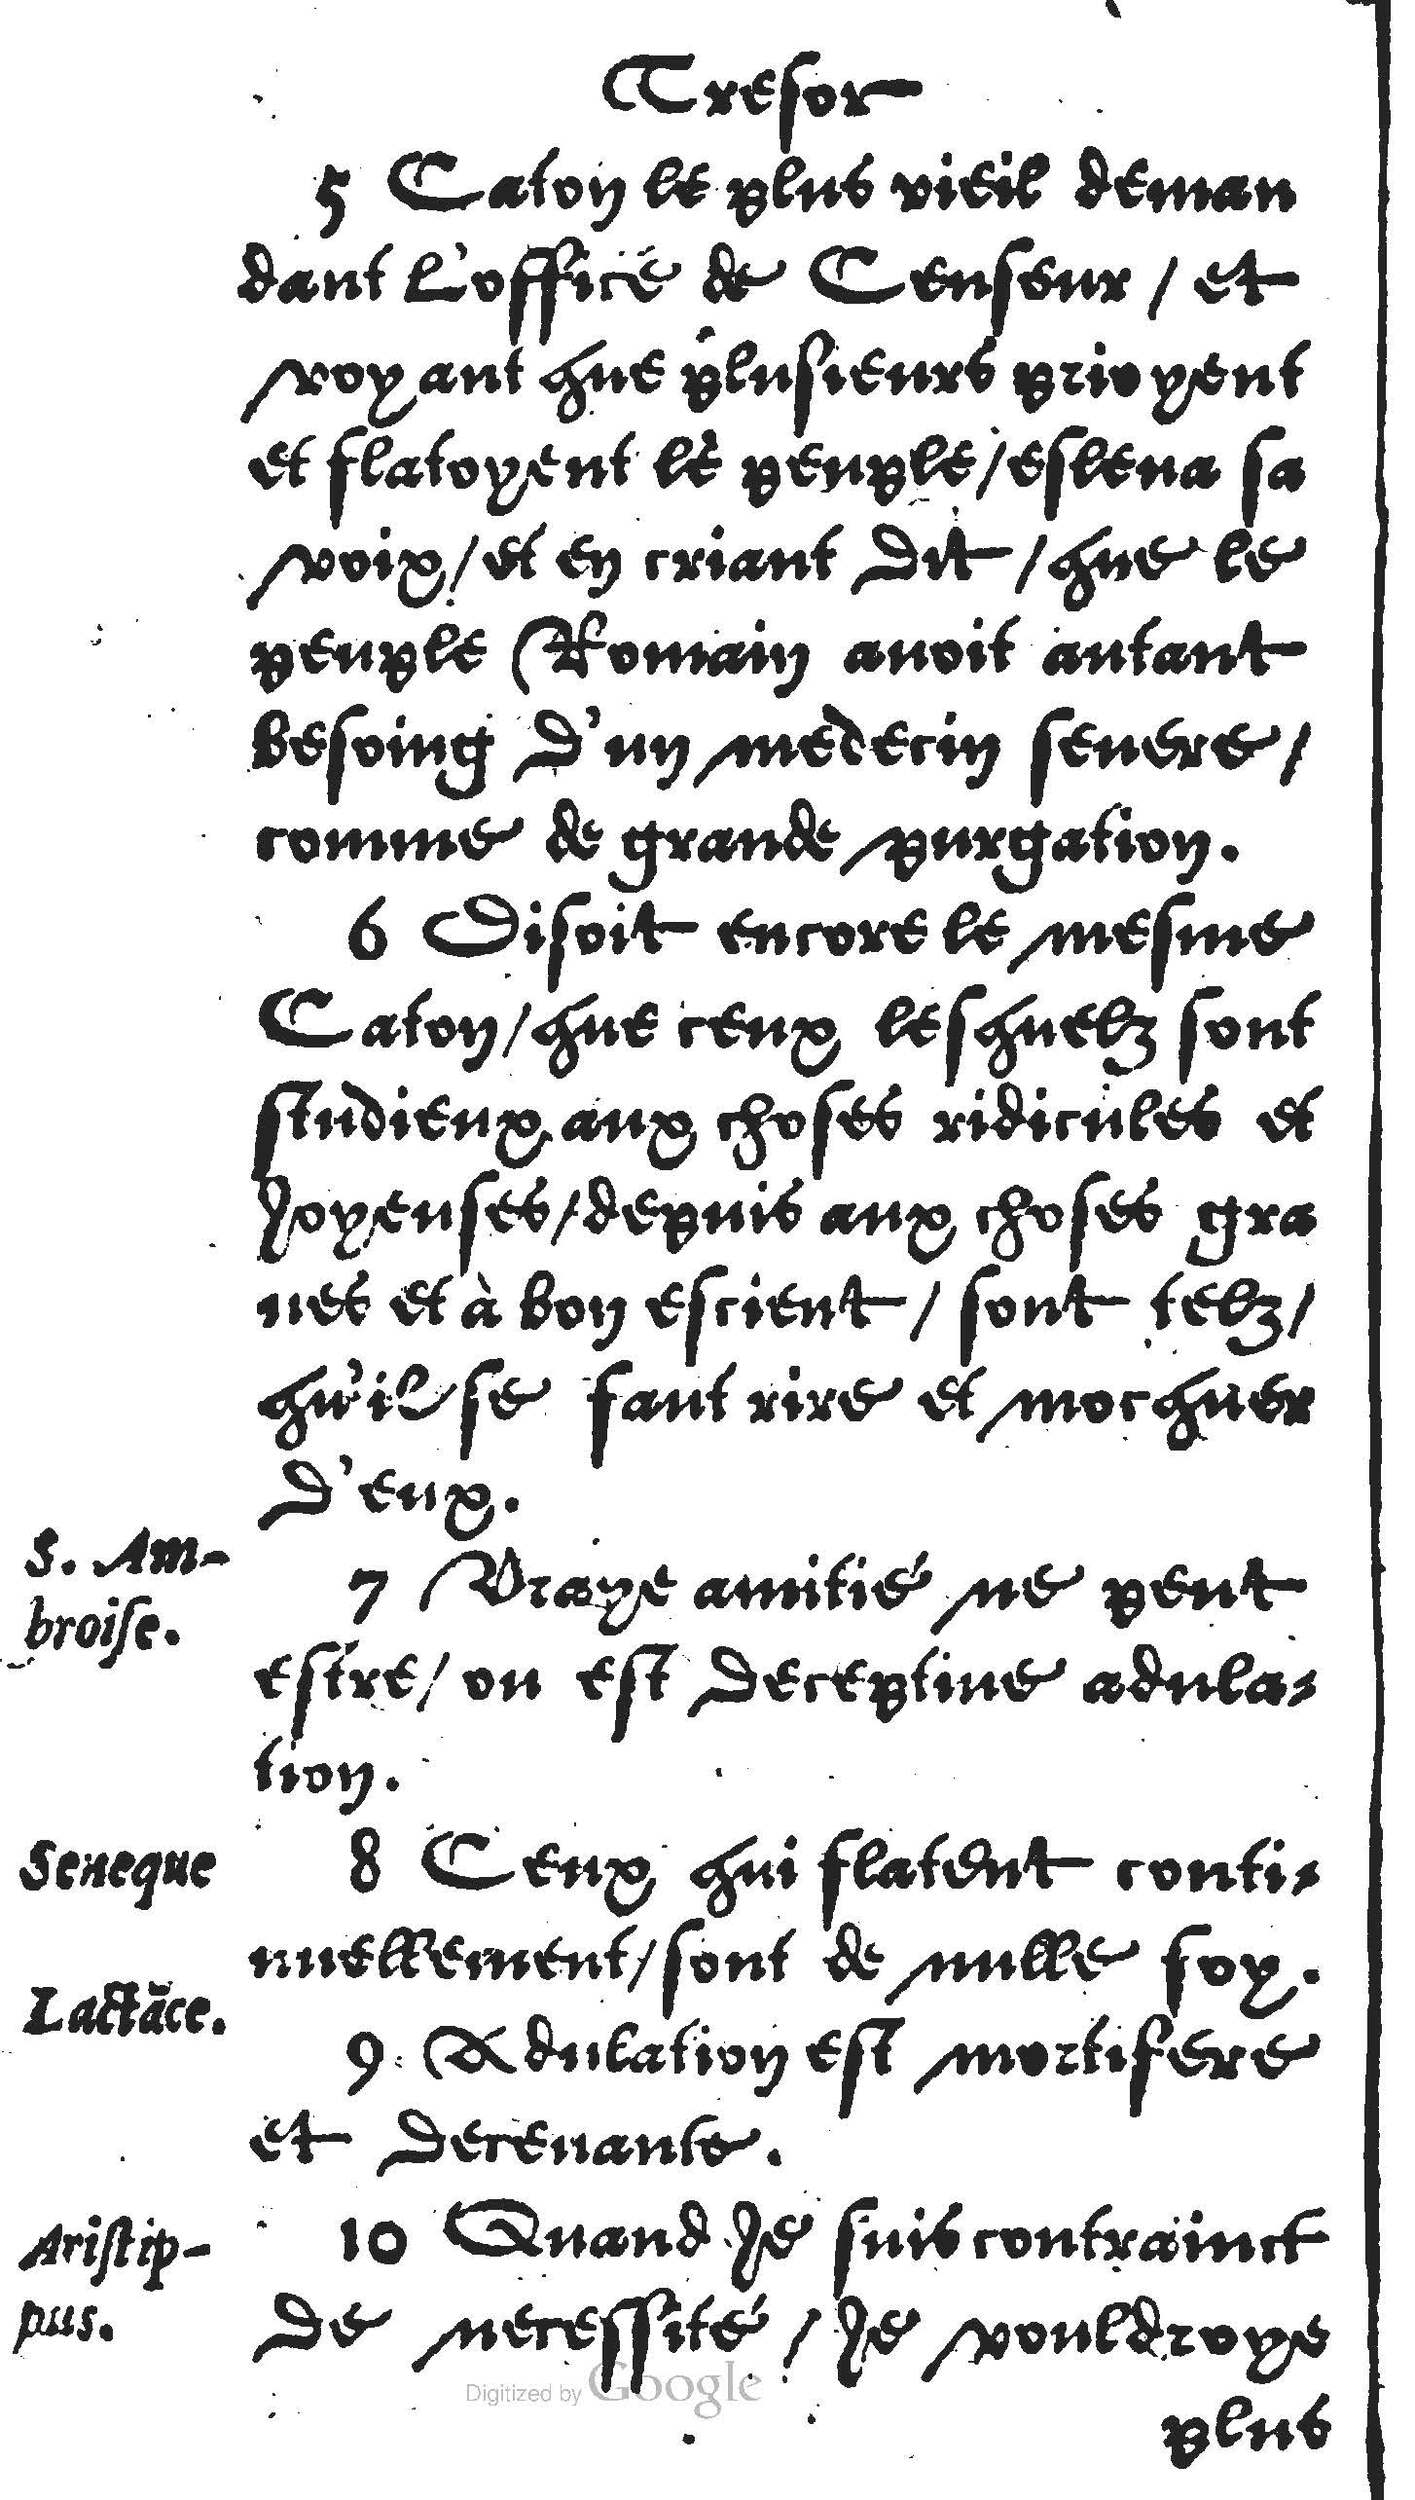 Tresor
5 Caton le plus vieil deman
dant l'office de Censeur / et
voyant que plusieurs prioyent
et flatoyent le peuple / esleua sa
voix / et en criant dit / que le
peuple Romain auoit autant
besoing d'un medecin seuere /
comme de grande purgation.
6 Disoit encore le mesme
Caton / que ceux lesquelz sont
studieux aux choses ridicules et
Joyeuses / depuis aux choses gra
ues et à bon escient / sont telz /
qu'il se faut rire et mocquer
d'eux.
S. Am-
broise.
7 Vraye amitié ne peut
estre / ou est deceptiue adula-
tion.
Seneque
8 Ceux qui flatent conti-
nuellement / sont de nulle foy.
Lactāce.
9 Adulation est mortifere
et deceuante.
Aristip-
pus.
10 Quand Je suis contrainct
de necessité / Je vouldroye
plus
Digitized by Google